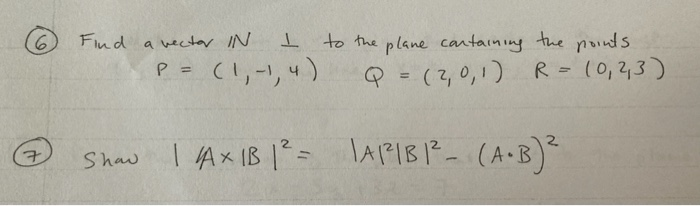 ⑥ Find a vector IN ⊥ to the plane containing the points
P = (1,-1,4) Q = (2,0,1) R = (0,2,3)
⑦ Show | A × B |² = |A|²|B|² - (A·B)²